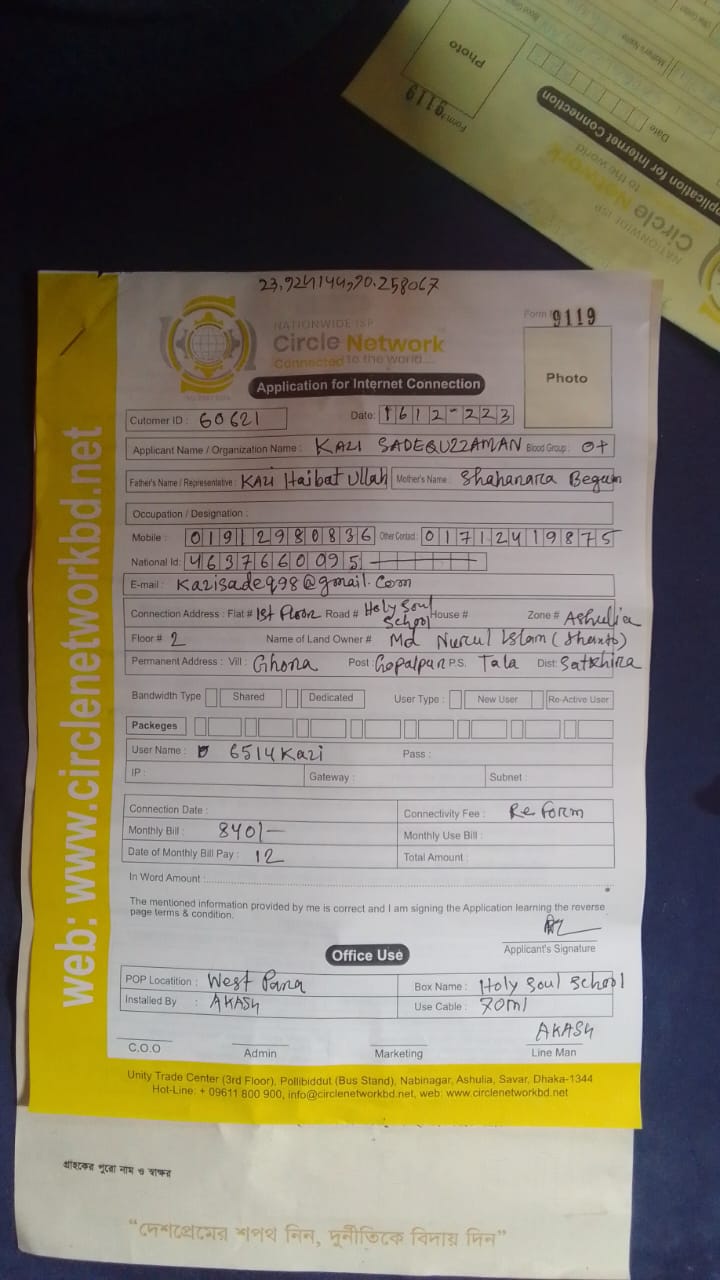 23.924144,90.258067
NATIONWIDE ISP
Circle Network
Connected to the world....
Form 9119
Photo
Application for Internet Connection
Cutomer ID : 60621 Date: 1612-223
Applicant Name / Organization Name : KAZI SADEQUZZAMAN Blood Group : O+
Father's Name / Representative : KAZI Haibat Ullah Mother's Name : Shahanara Begum
Occupation / Designation :
Mobile : 01912980836 Other Contact : 01712419875
National Id: 4637660095
E-mail : Kazisadeq98@gmail.com
Connection Address : Flat # 1st Floor Road # Holy Soul School House # Zone # Ashulia
Floor # 2 Name of Land Owner # Md Nurul Islam (Shanto)
Permanent Address : Vill : Ghona Post : Gopalpur P.S. Tala Dist: Satkhira
Bandwidth Type Shared Dedicated User Type : New User Re-Active User
Packeges
User Name : 6514Kazi Pass :
IP : Gateway : Subnet :
Connection Date : Connectivity Fee : Re form
Monthly Bill : 840/- Monthly Use Bill :
Date of Monthly Bill Pay : 12 Total Amount :
In Word Amount :
The mentioned information provided by me is correct and I am signing the Application learning the reverse
page terms & condition.
Applicant's Signature
Office Use
POP Locatition : West Para Box Name : Holy Soul School
Installed By : AKASH Use Cable : 70ml
AKASH
C.O.O Admin Marketing Line Man
Unity Trade Center (3rd Floor), Pollibiddut (Bus Stand), Nabinagar, Ashulia, Savar, Dhaka-1344
Hot-Line: + 09611 800 900, info@circlenetworkbd.net, web: www.circlenetworkbd.net
web: www.circlenetworkbd.net
গ্রাহকের পুরো নাম ও স্বাক্ষর
“দেশপ্রেমের শপথ নিন, দুর্নীতিকে বিদায় দিন”
Photo
Form 9119
Date
Mother's Name
Application for Internet Connection
to the world
Circle Network
NATIONWIDE ISP